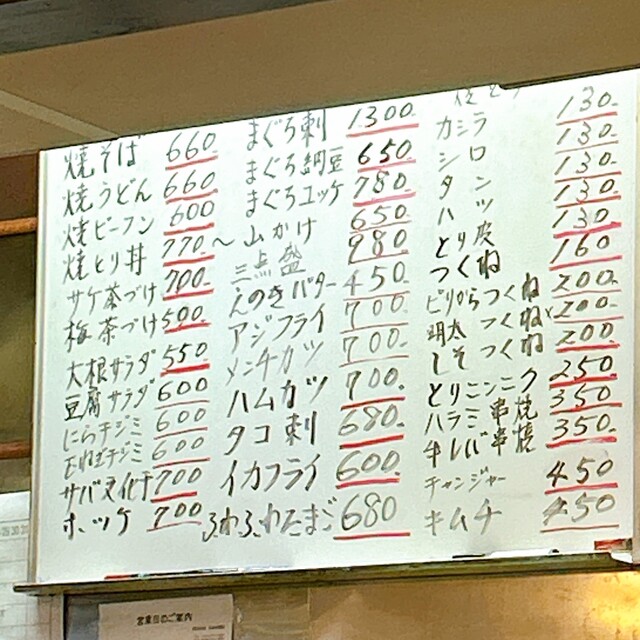 焼そば 660
焼うどん 660
焼ビーフン 600
焼とり丼 770~
サケ茶づけ 700
梅茶づけ 500
大根サラダ 550
豆腐サラダ 600
にらチヂミ 600
チヂミ 600
サバ文化干 700
ホッケ 700
まぐろ刺 1300.
まぐろ納豆 650.
まぐろユッケ 780.
山かけ 650.
三点盛 980.
んのきバター 450
アジフライ 700.
メンチカツ 700.
ハムカツ 700.
タコ刺 680.
イカフライ 600.
ふわふわたまご 680
130.
カシラ 130.
シロ 130.
タン 130.
ハツ 130
とり皮 160
つくね 200.
ピリからつくね 200.
明太つくね 200
しそつくね 250
とりニンニク 350
ハラミ串焼 350.
牛レバ串焼
チャンジャー 450
キムチ 450
営業日のご案内